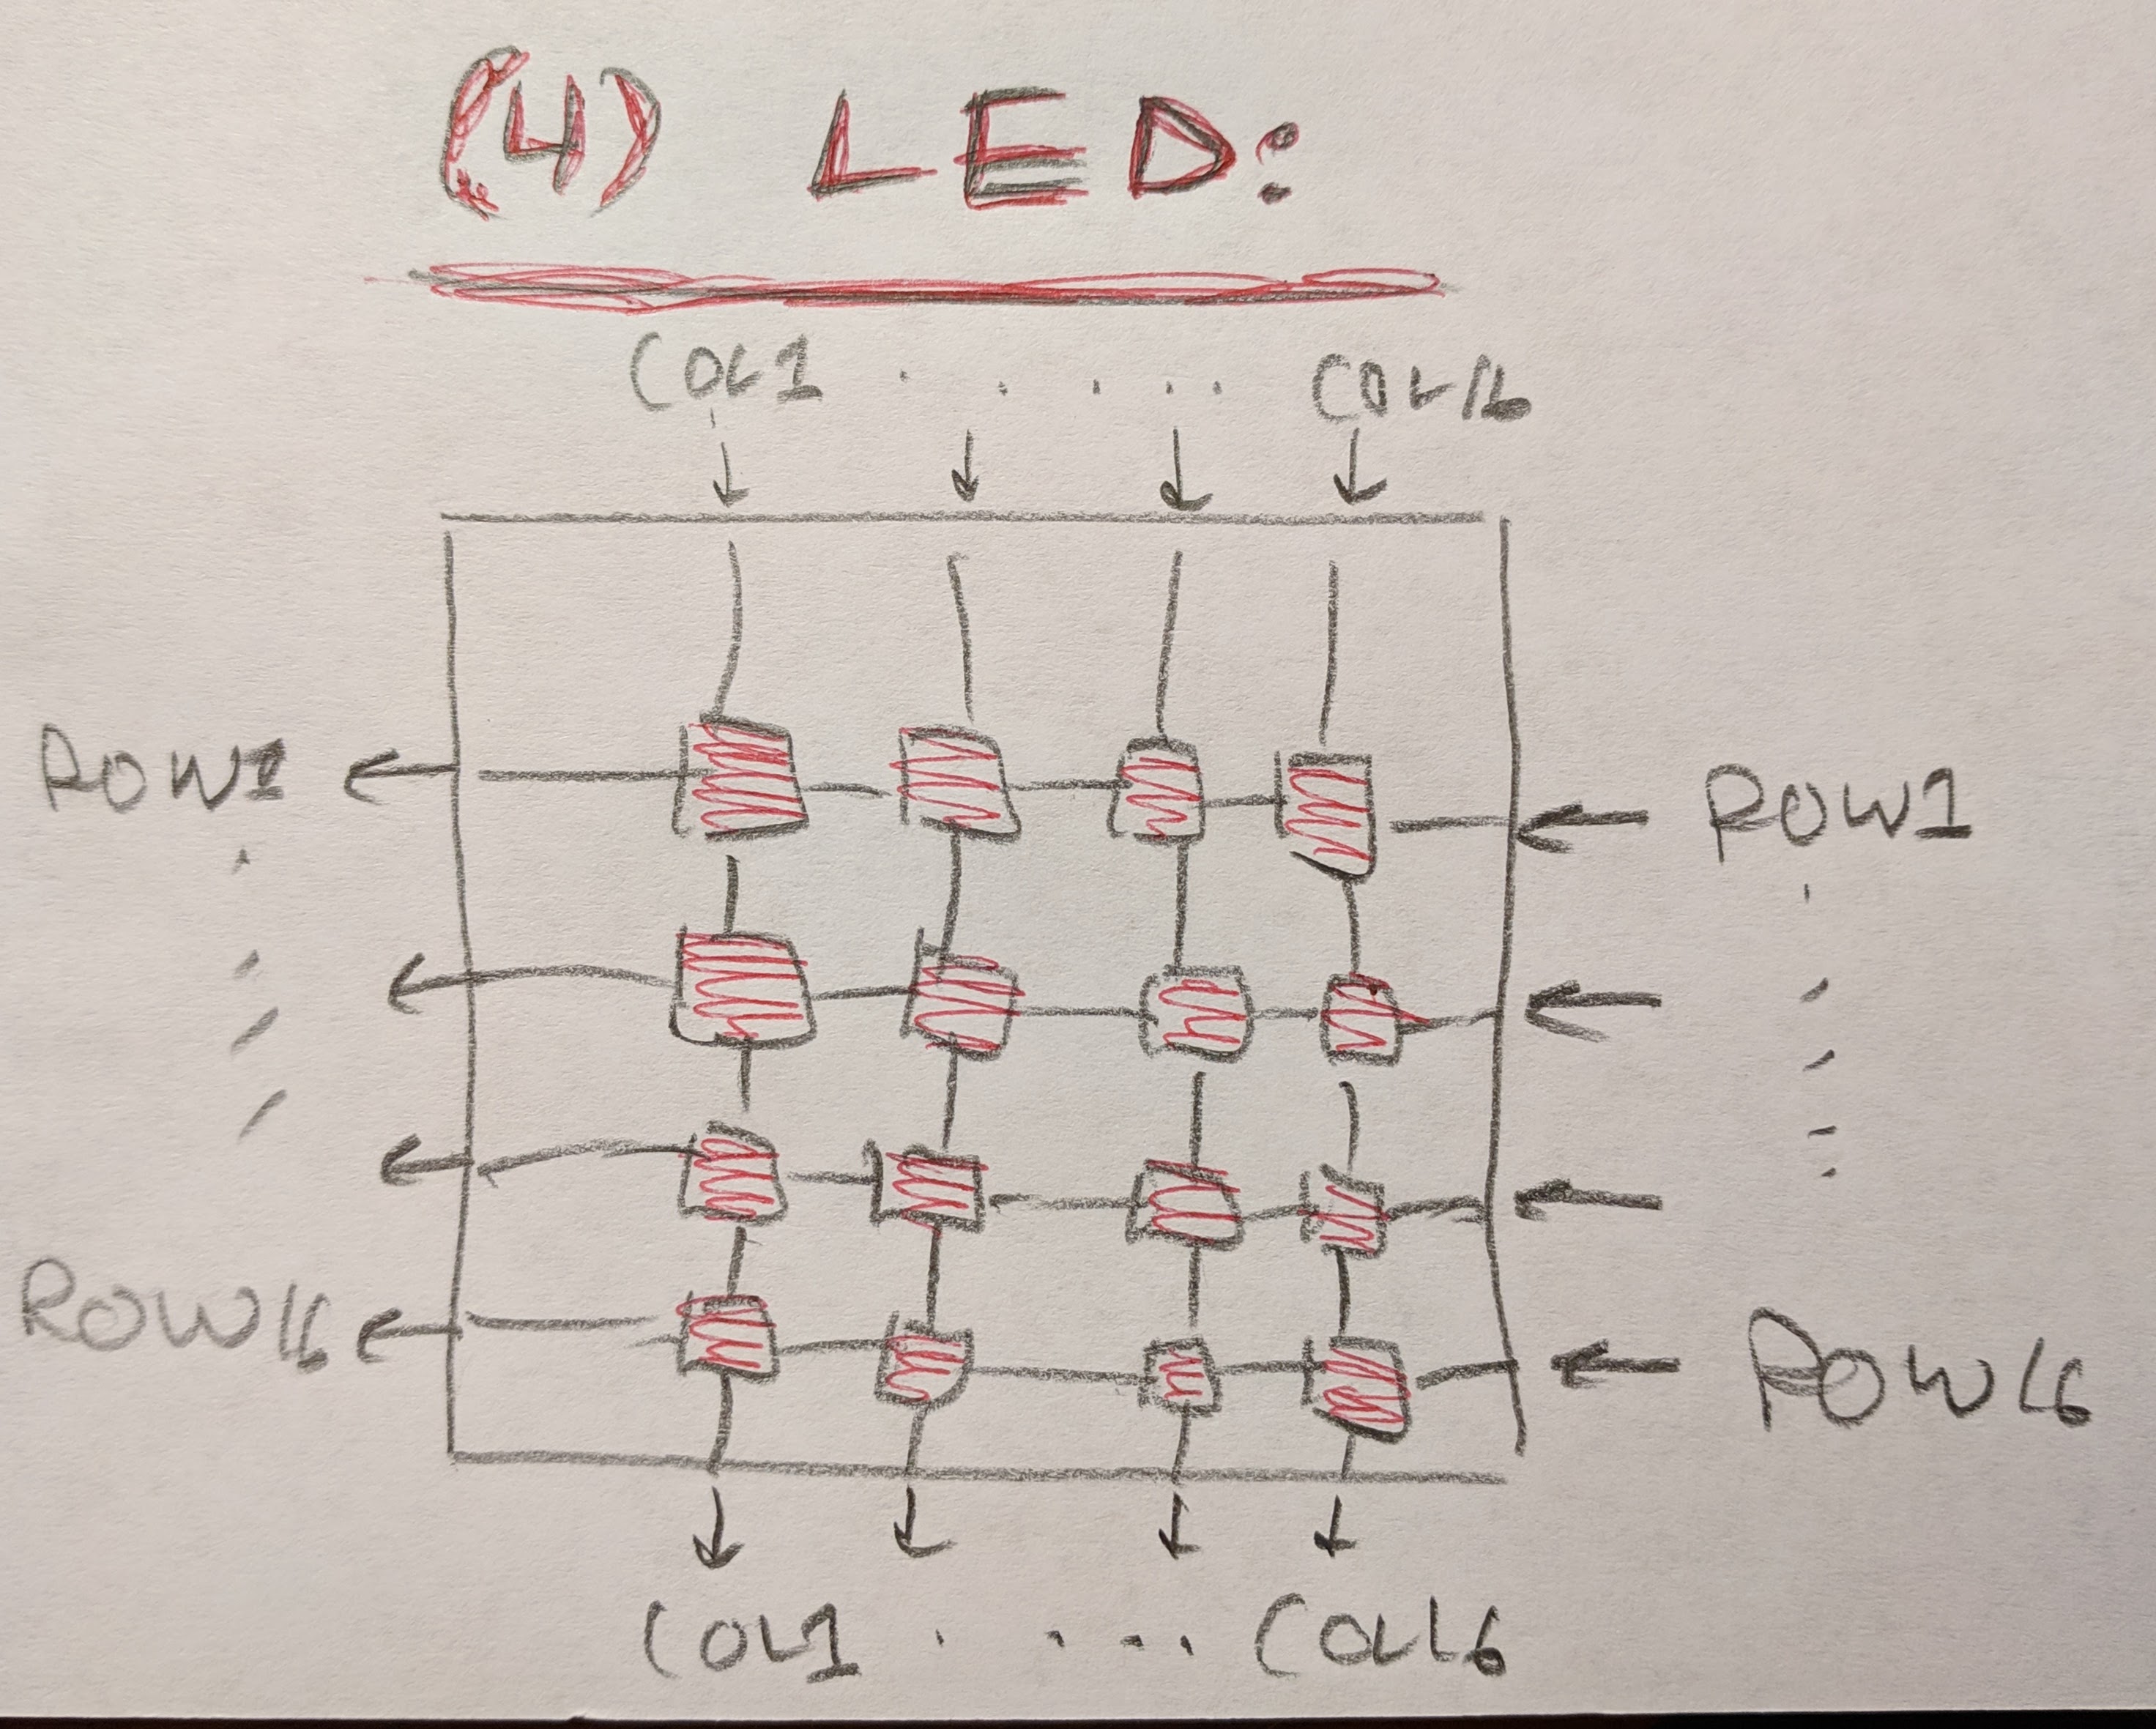 (4) LED:
COL1 . . . . . COL16
ROW1 ROW1
ROW16 ROW16
COL1 . . . . . COL16